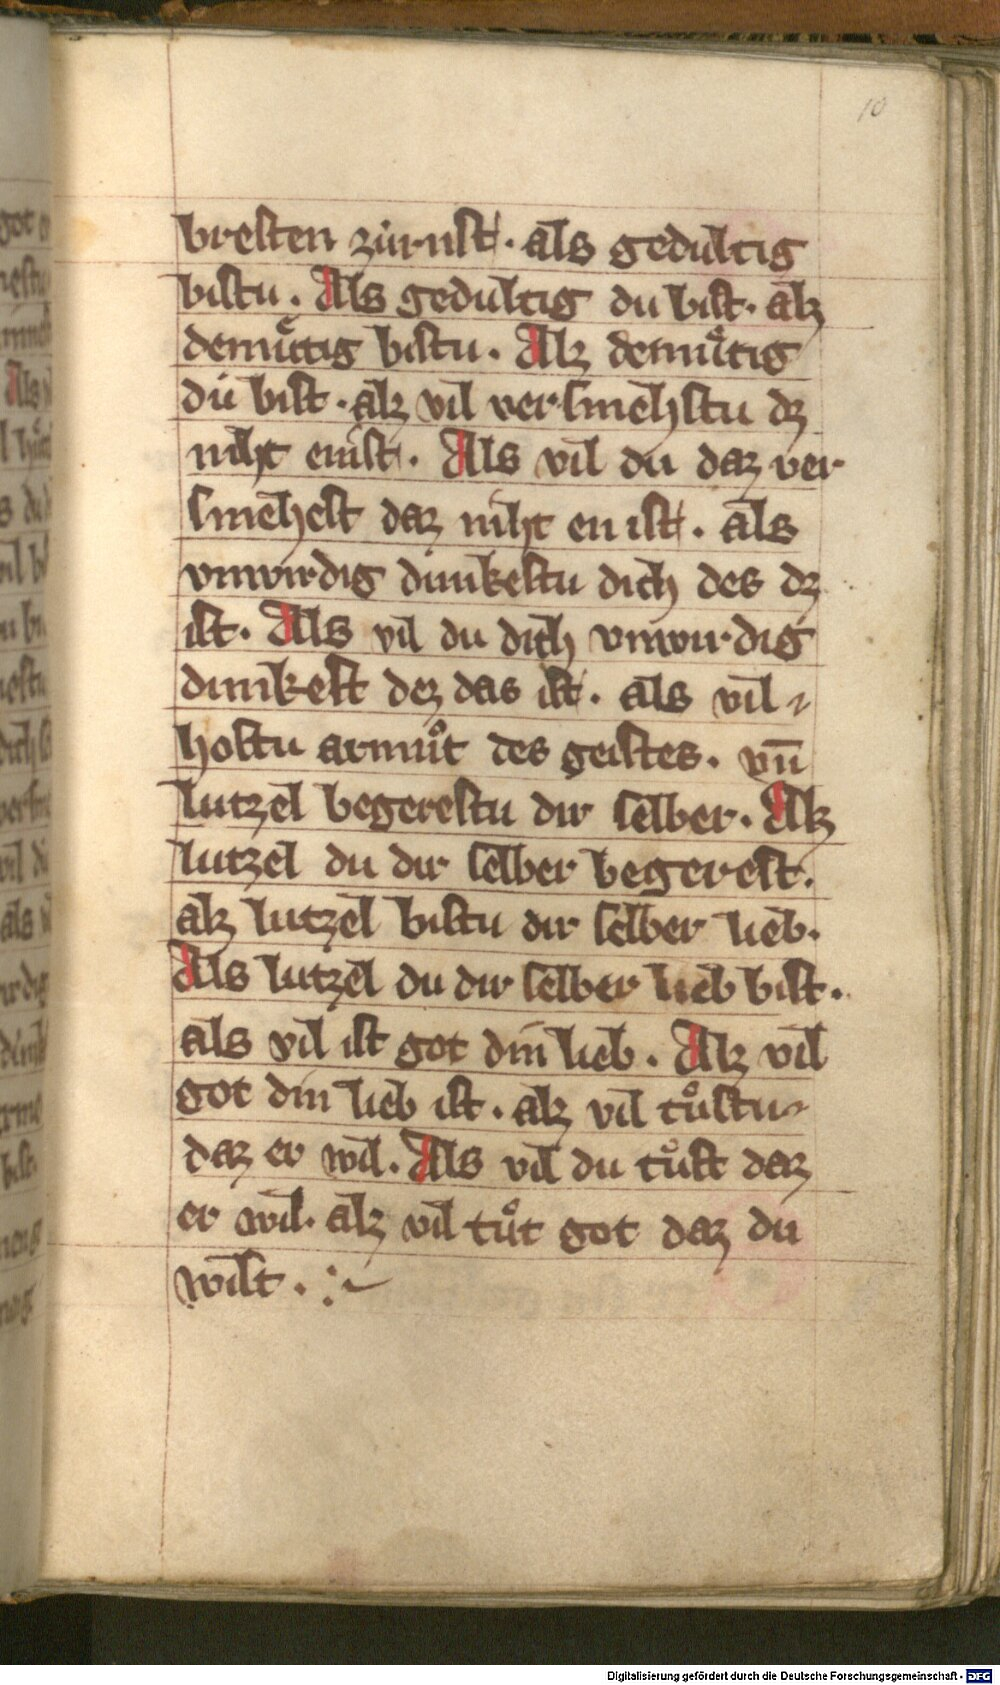 10
bresten zúrnst. als gedultig
bistu. Als gedultig du bist. alz
demuͤtig bistu. Alz demuͤtig
dú bist. alz vil versmehstu dz
niht enist. Als vil du daz ver
smehest daz niht en ist. als
vnwirdig dunkestu dich des dz
ist. Als vil du dich vnwirdig
dunkest dez das ist. als vil
hostu armuͦt des geistes. vn̄
lutzel begerestu dir selber. Alz
lutzel du dir selber begerest.
alz lutzel bistu dir selber lieb.
Als lutzel du dir selber lieb bist.
als vil ist got din lieb. Alz vil
got din lieb ist. alz vil tuͦstu
daz er wil. Als vil du tuͦst daz
er wil. alz vil tuͦt got daz du
wilt.
Digitalisierung gefördert durch die Deutsche Forschungsgemeinschaft - DFG